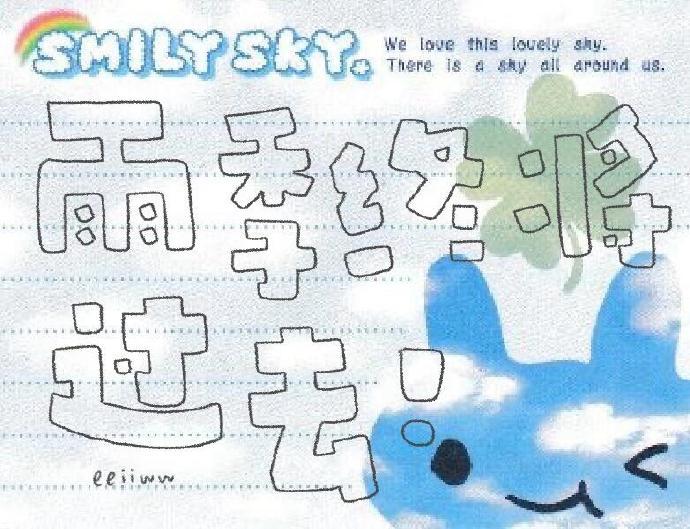 SMILY SKY.
We love this lovely sky.
There is a sky all around us.
雨季终将
过去!
eeiiww